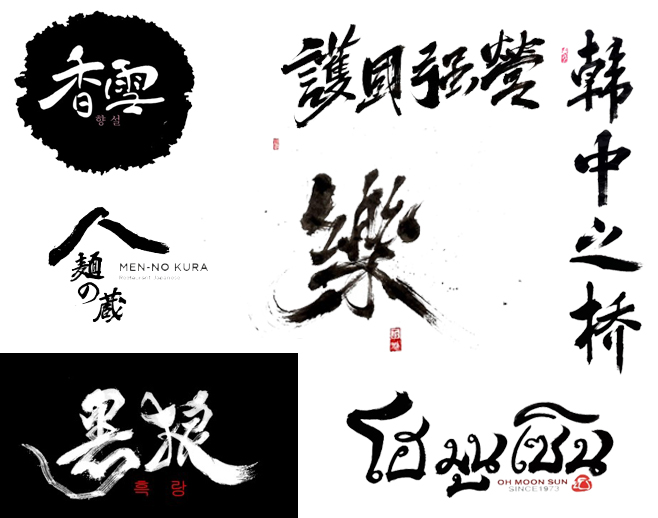 香雪
향설
護國强營
韩中之桥
麺の蔵
MEN-NO KURA
Restaurant Japonais
樂
黑狼
흑랑
มูนซิน
OH MOON SUN
SINCE1973